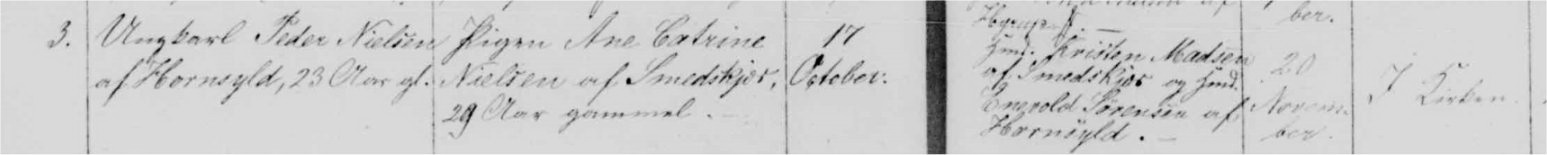 3.
Ungkarl Peder Nielsen
af Hornsyld, 23 Aar gl.
Pigen Ane Catrine
Nielsen af Smedskjær,
29 Aar gammel.
17
October.
ber.
Huusm. Kristen Madsen
af Smedskjær og Huusm.
Enevold Sørensen af
Hornsyld.
20
Novem-
ber.
I Kirken.